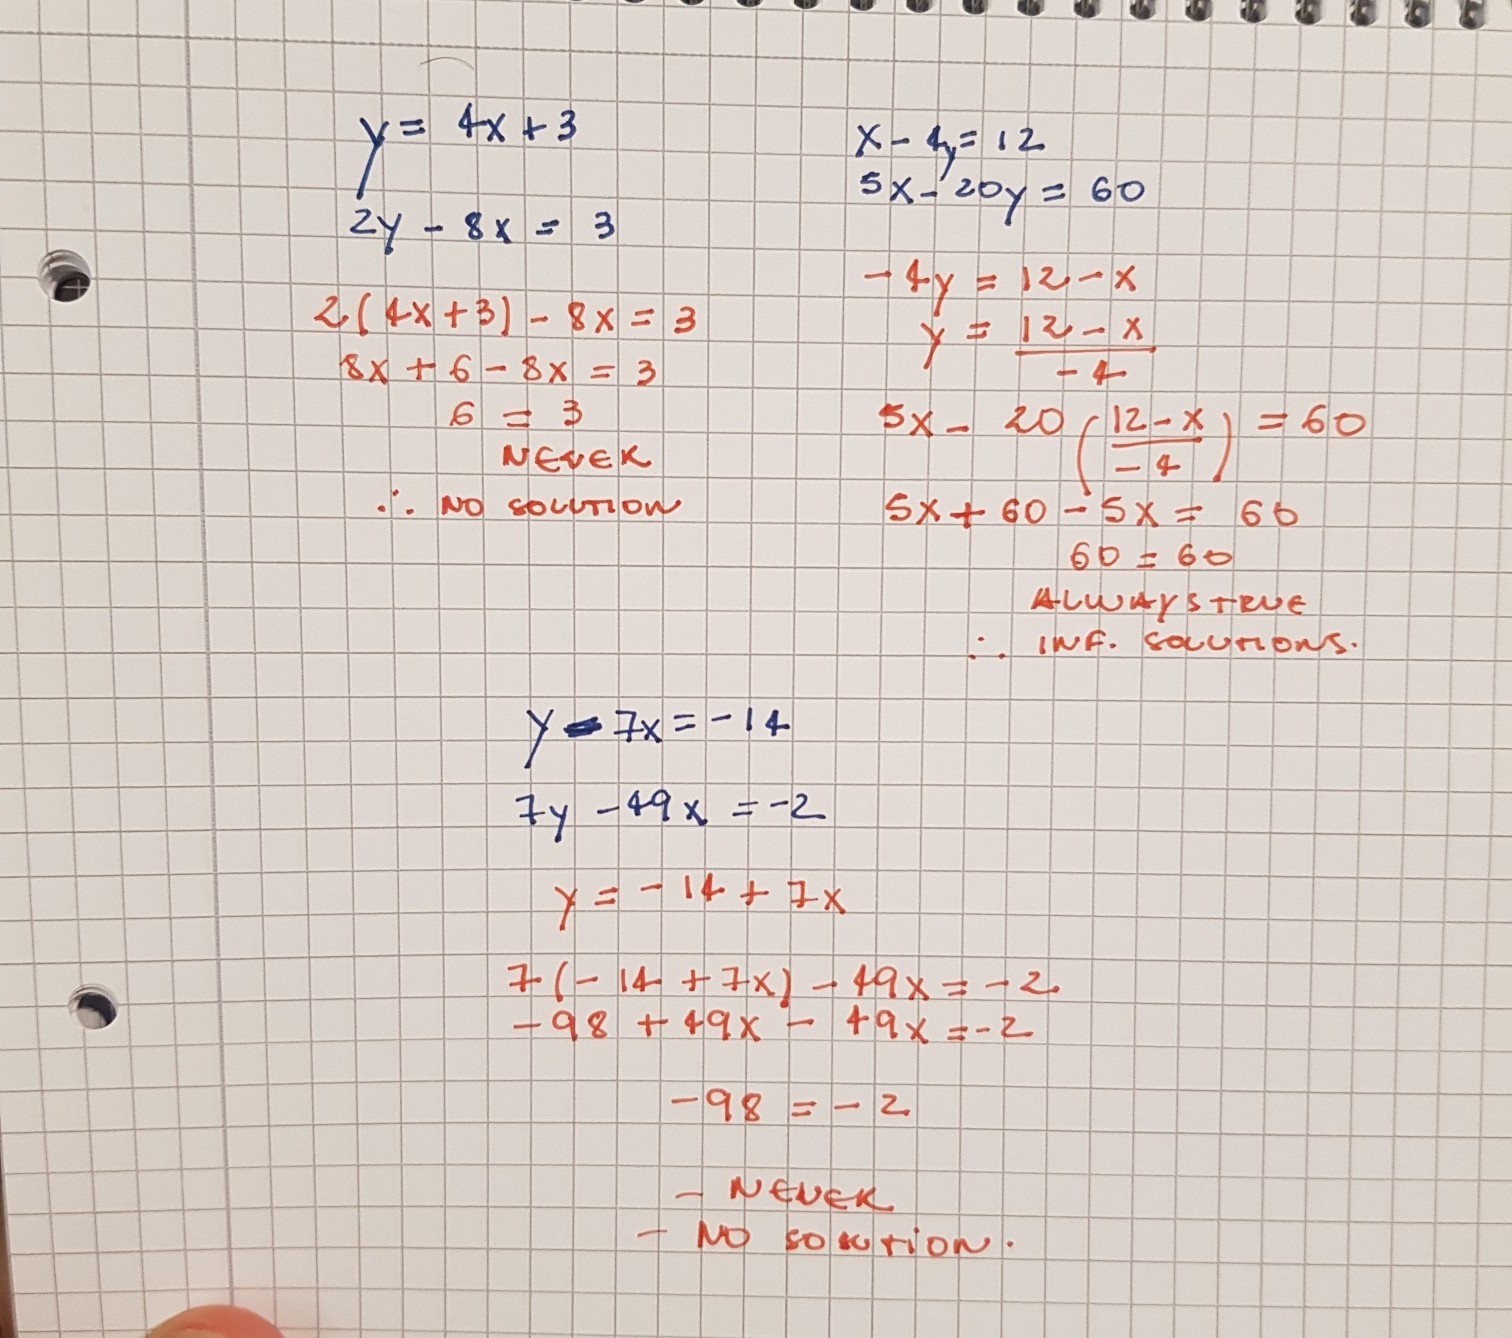 y = 4x + 3
2y - 8x = 3
2(4x+3) - 8x = 3
8x + 6 - 8x = 3
6 = 3
NEVER
∴ NO SOLUTION
x - 4y = 12
5x - 20y = 60
-4y = 12 - x
y = (12 - x)/-4
5x - 20((12 - x)/-4) = 60
5x + 60 - 5x = 60
60 = 60
ALWAYS TRUE
∴ INF. SOLUTIONS.
y - 7x = -14
7y - 49x = -2
y = -14 + 7x
7(-14 + 7x) - 49x = -2
-98 + 49x - 49x = -2
-98 = -2
- NEVER
- NO SOLUTION.